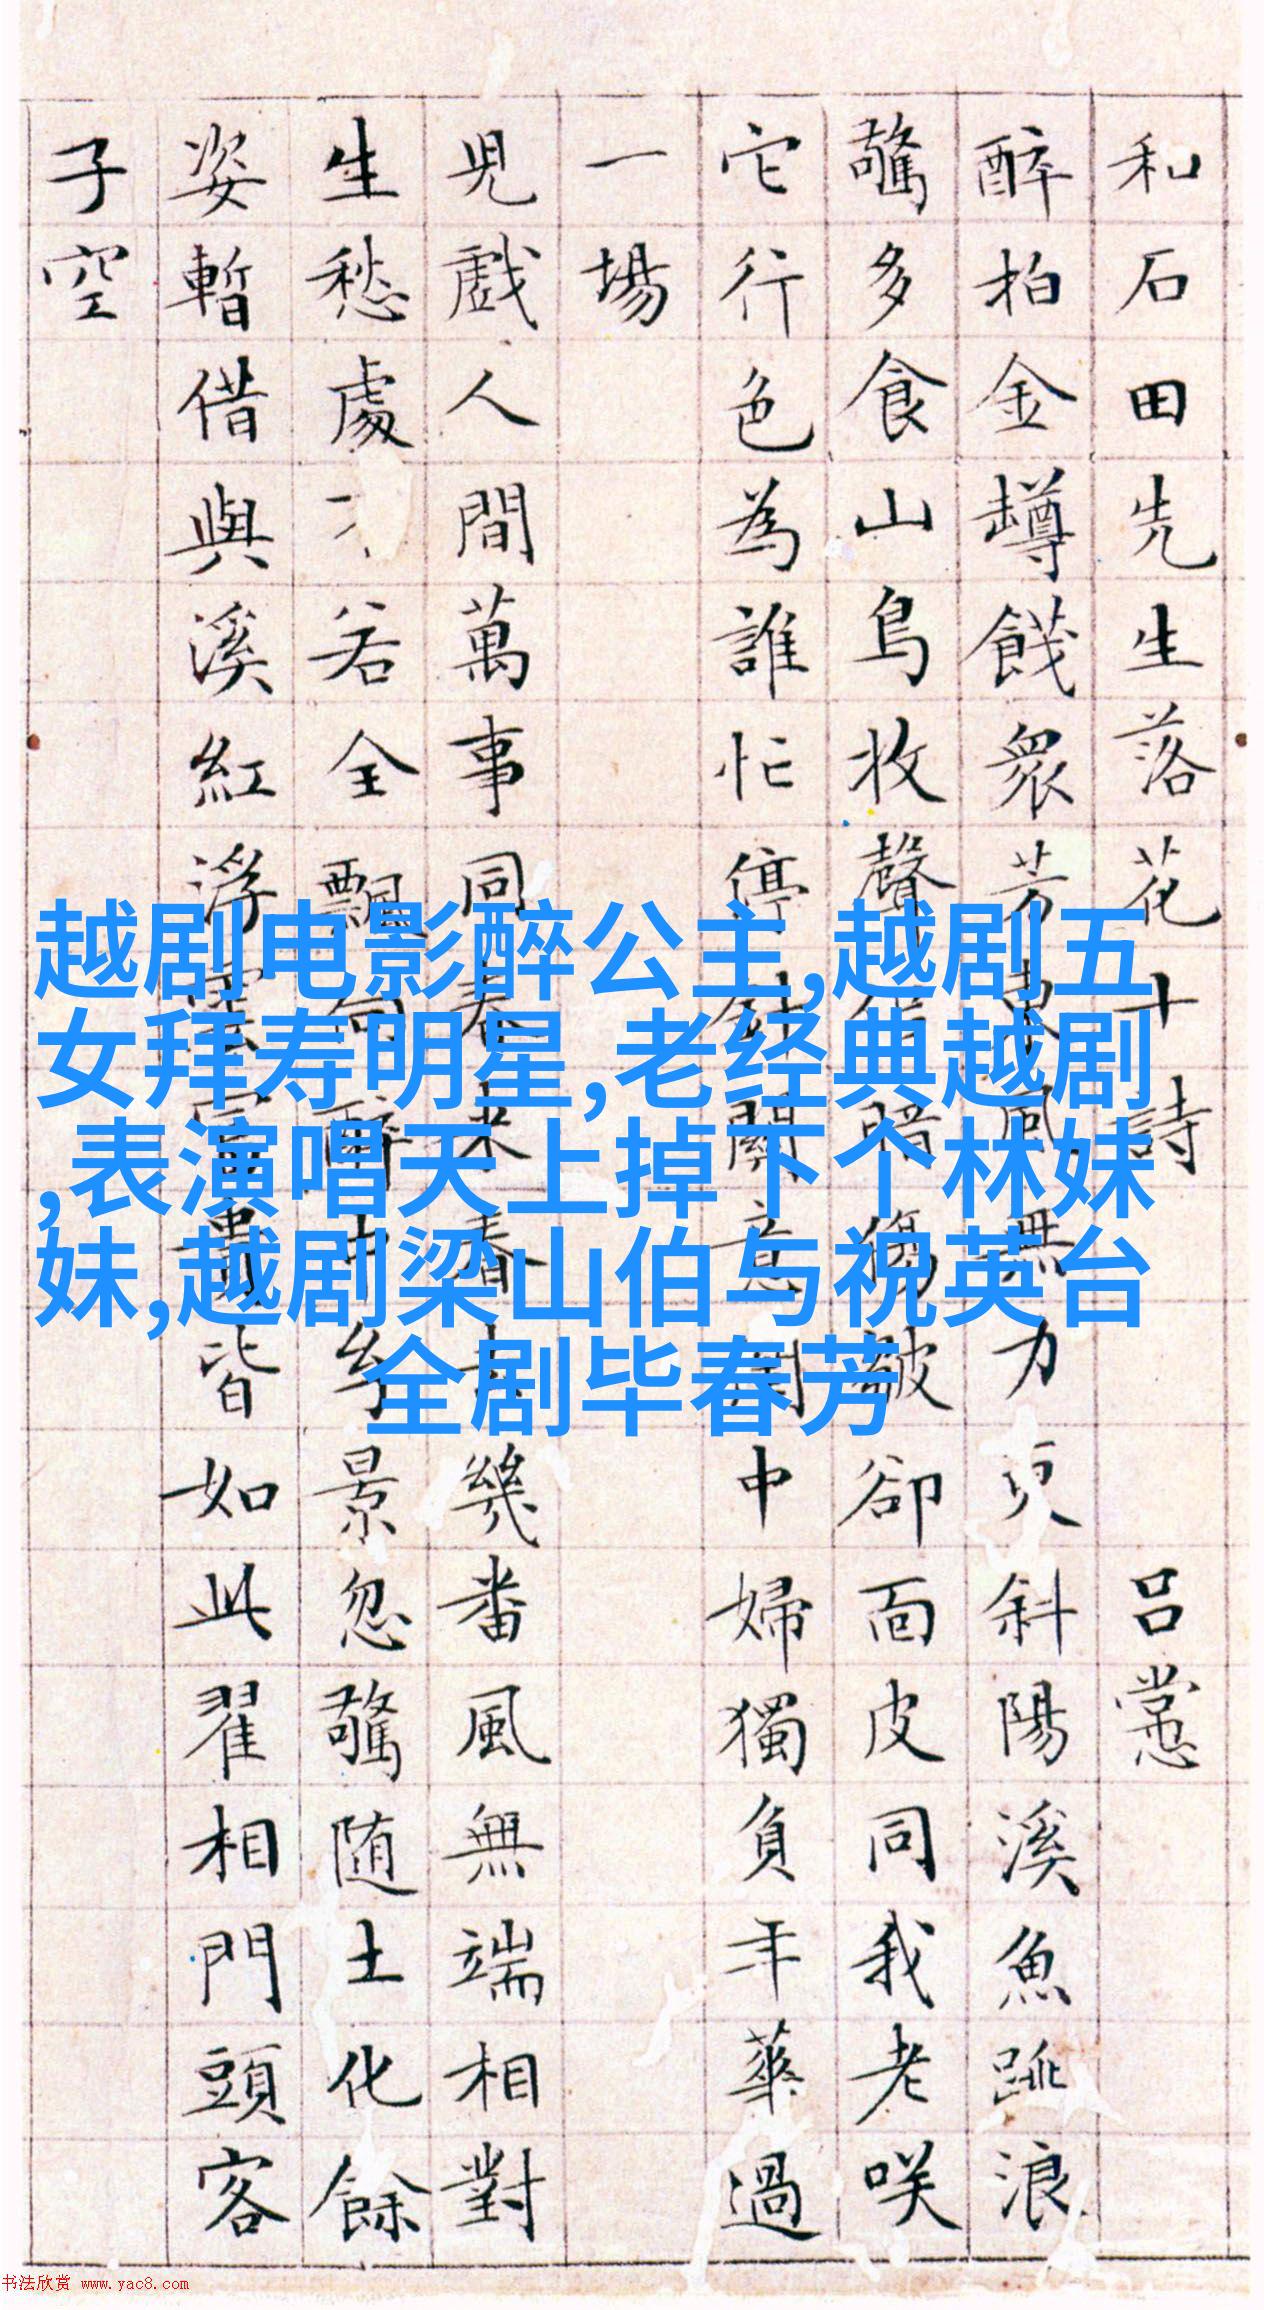 和石田先生落花十詩 吕㦂
醉拍金罇餞衆芳東風無力更斜陽溪魚跳浪
驚多食山鳥收聲暗傷皺卻面皮同我老咲
它行色為誰忙停針關意閨中婦獨負年華過
一場
兒戲人間萬事同春来春去幾番風無端相對
生愁處若全飄向醉中幻景忽驚随土化餘
姿暫借與溪紅浮雲富貴皆如此翟相門頭客
子空
越剧电影醉公主,越剧五
女拜寿明星,老经典越剧
,表演唱天上掉下个林妹
妹,越剧梁山伯与祝英台
全剧毕春芳
书法欣赏 www.yac8.com